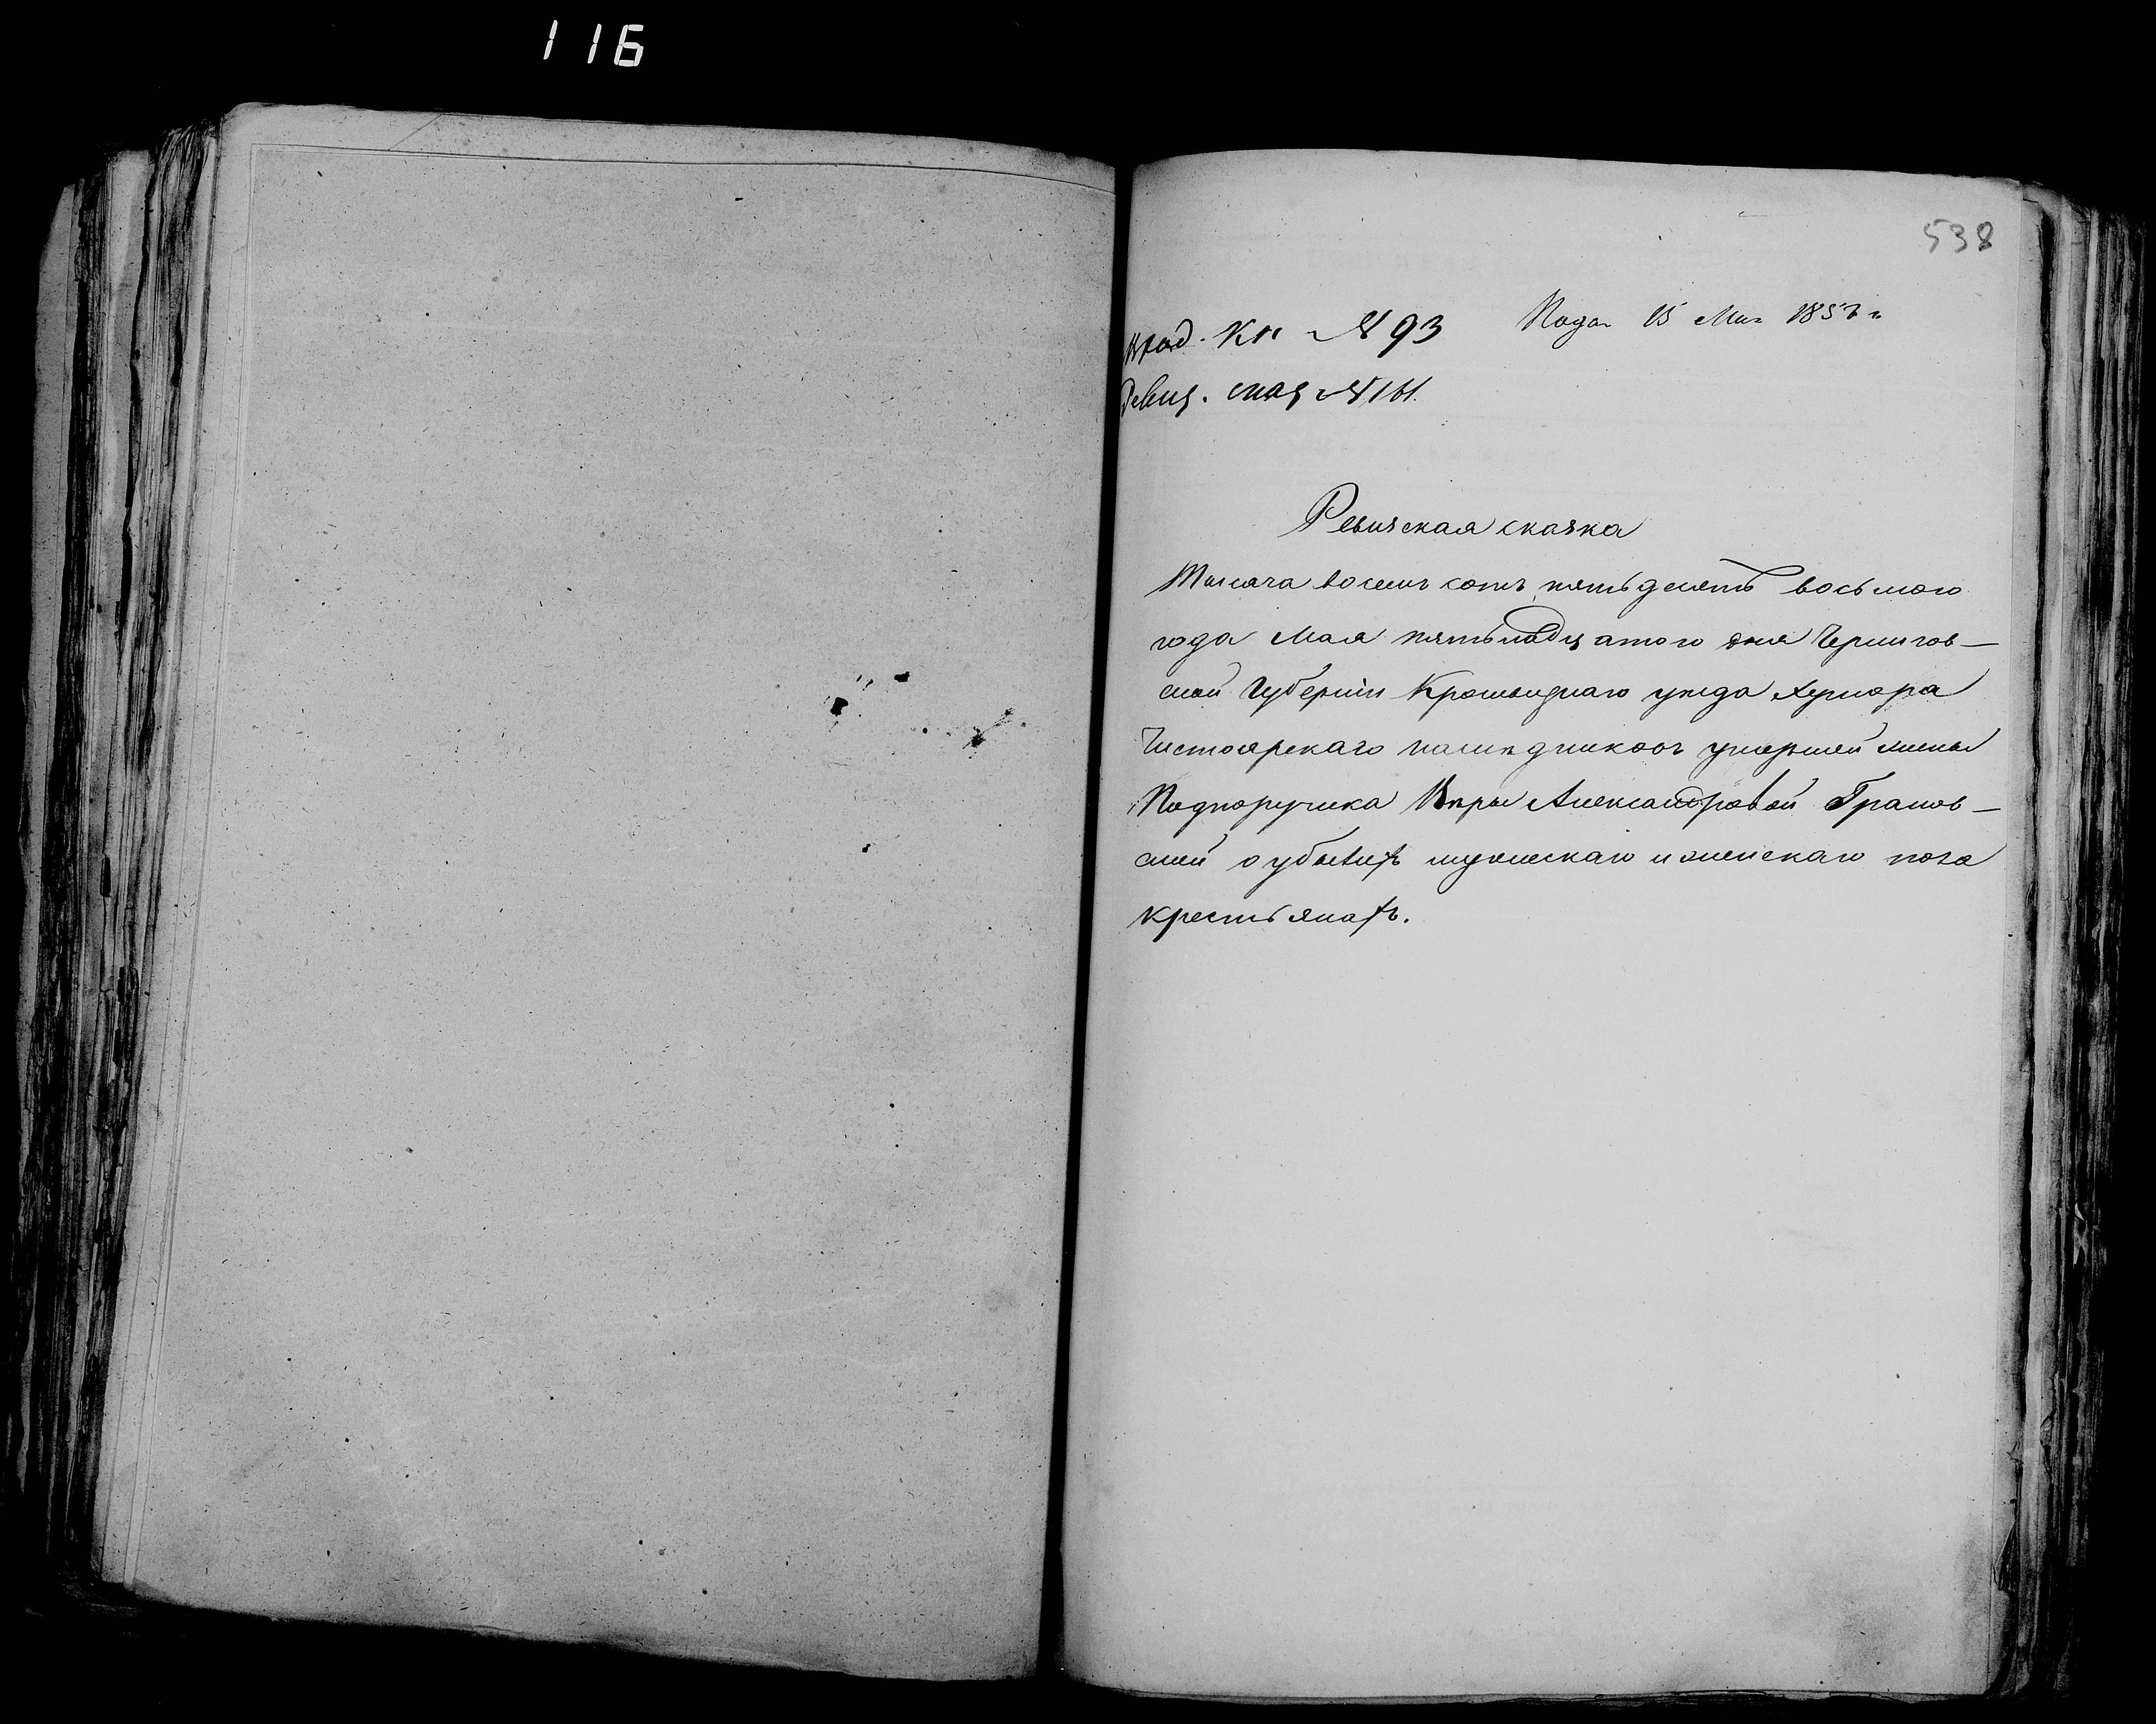 116
538
Вход. Кн № 93 Пода. 15 Мая 1858 г.
Ревиз. сказ № 161.
Ревизская сказка
Тысяча восемь сотъ пятьдесятъ восьмого
года Мая пятьнадцатого дня Чернигов-
ской Губерніи Кролевецкаго уезда Хутора
Чистоярскаго наследниковъ умершей жены
Подпоручика Веры Александровой Гранов-
ской о убывшихъ мужескаго и женскаго пола
крестьянахъ.